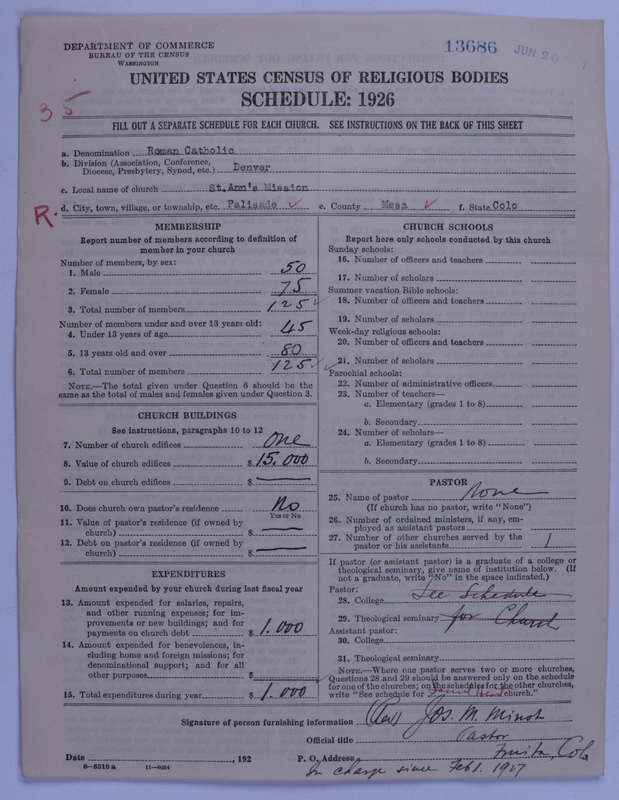 DEPARTMENT OF COMMERCE
BUREAU OF THE CENSUS
WASHINGTON
13686
JUN 20
UNITED STATES CENSUS OF RELIGIOUS BODIES
SCHEDULE: 1926
35
FILL OUT A SEPARATE SCHEDULE FOR EACH CHURCH. SEE INSTRUCTIONS ON THE BACK OF THIS SHEET
a. Denomination Roman Catholic
b. Division (Association, Conference,
Diocese, Presbytery, Synod, etc.) Denver
c. Local name of church St.Ann's Mission
R. d. City, town, village, or township, etc. Palisade e. County Mesa f. State Colo
MEMBERSHIP
Report number of members according to definition of
member in your church
Number of members, by sex:
1. Male 50
2. Female 75
3. Total number of members 125
Number of members under and over 13 years old:
4. Under 13 years of age 45
5. 13 years old and over 80
6. Total number of members 125
NOTE.—The total given under Question 6 should be
same as the total of males and females given under Question 3.
CHURCH BUILDINGS
See instructions, paragraphs 10 to 12
7. Number of church edifices One
8. Value of church edifices $ 15.000
9. Debt on church edifices $ —
10. Does church own pastor's residence No
Yes or No
11. Value of pastor's residence (if owned by
church) $ —
12. Debt on pastor's residence (if owned by
church) $ —
EXPENDITURES
Amount expended by your church during last fiscal year
13. Amount expended for salaries, repairs,
and other running expenses; for im-
provements or new buildings; and for
payments on church debt $ 1.000
14. Amount expended for benevolences, in-
cluding home and foreign missions; for
denominational support; and for all
other purposes $
15. Total expenditures during year $ 1.000
CHURCH SCHOOLS
Report here only schools conducted by this church
Sunday schools:
16. Number of officers and teachers
17. Number of scholars
Summer vacation Bible schools:
18. Number of officers and teachers
19. Number of scholars
Week-day religious schools:
20. Number of officers and teachers
21. Number of scholars
Parochial schools:
22. Number of administrative officers
23. Number of teachers—
a. Elementary (grades 1 to 8)
b. Secondary
24. Number of scholars—
a. Elementary (grades 1 to 8)
b. Secondary
PASTOR
25. Name of pastor None
(If church has no pastor, write "None")
26. Number of ordained ministers, if any, em-
ployed as assistant pastors
27. Number of other churches served by the
pastor or his assistants 1
If pastor (or assistant pastor) is a graduate of a college or
theological seminary, give name of institution below. (If
not a graduate, write "No" in the space indicated.)
Pastor:
28. College See Schedule
29. Theological seminary for Church
Assistant pastor:
30. College
31. Theological seminary
NOTE.—Where one pastor serves two or more churches,
Questions 28 and 29 should be answered only on the schedule
for one of the churches; on the schedules for the other churches,
write "See schedule for church."
Signature of person furnishing information (Rev) Jos. M. Minot
Official title Pastor
Date , 192 P. O. Address Fruita, Colo
8-5316a 11-9024
In charge since Feb 1. 1927